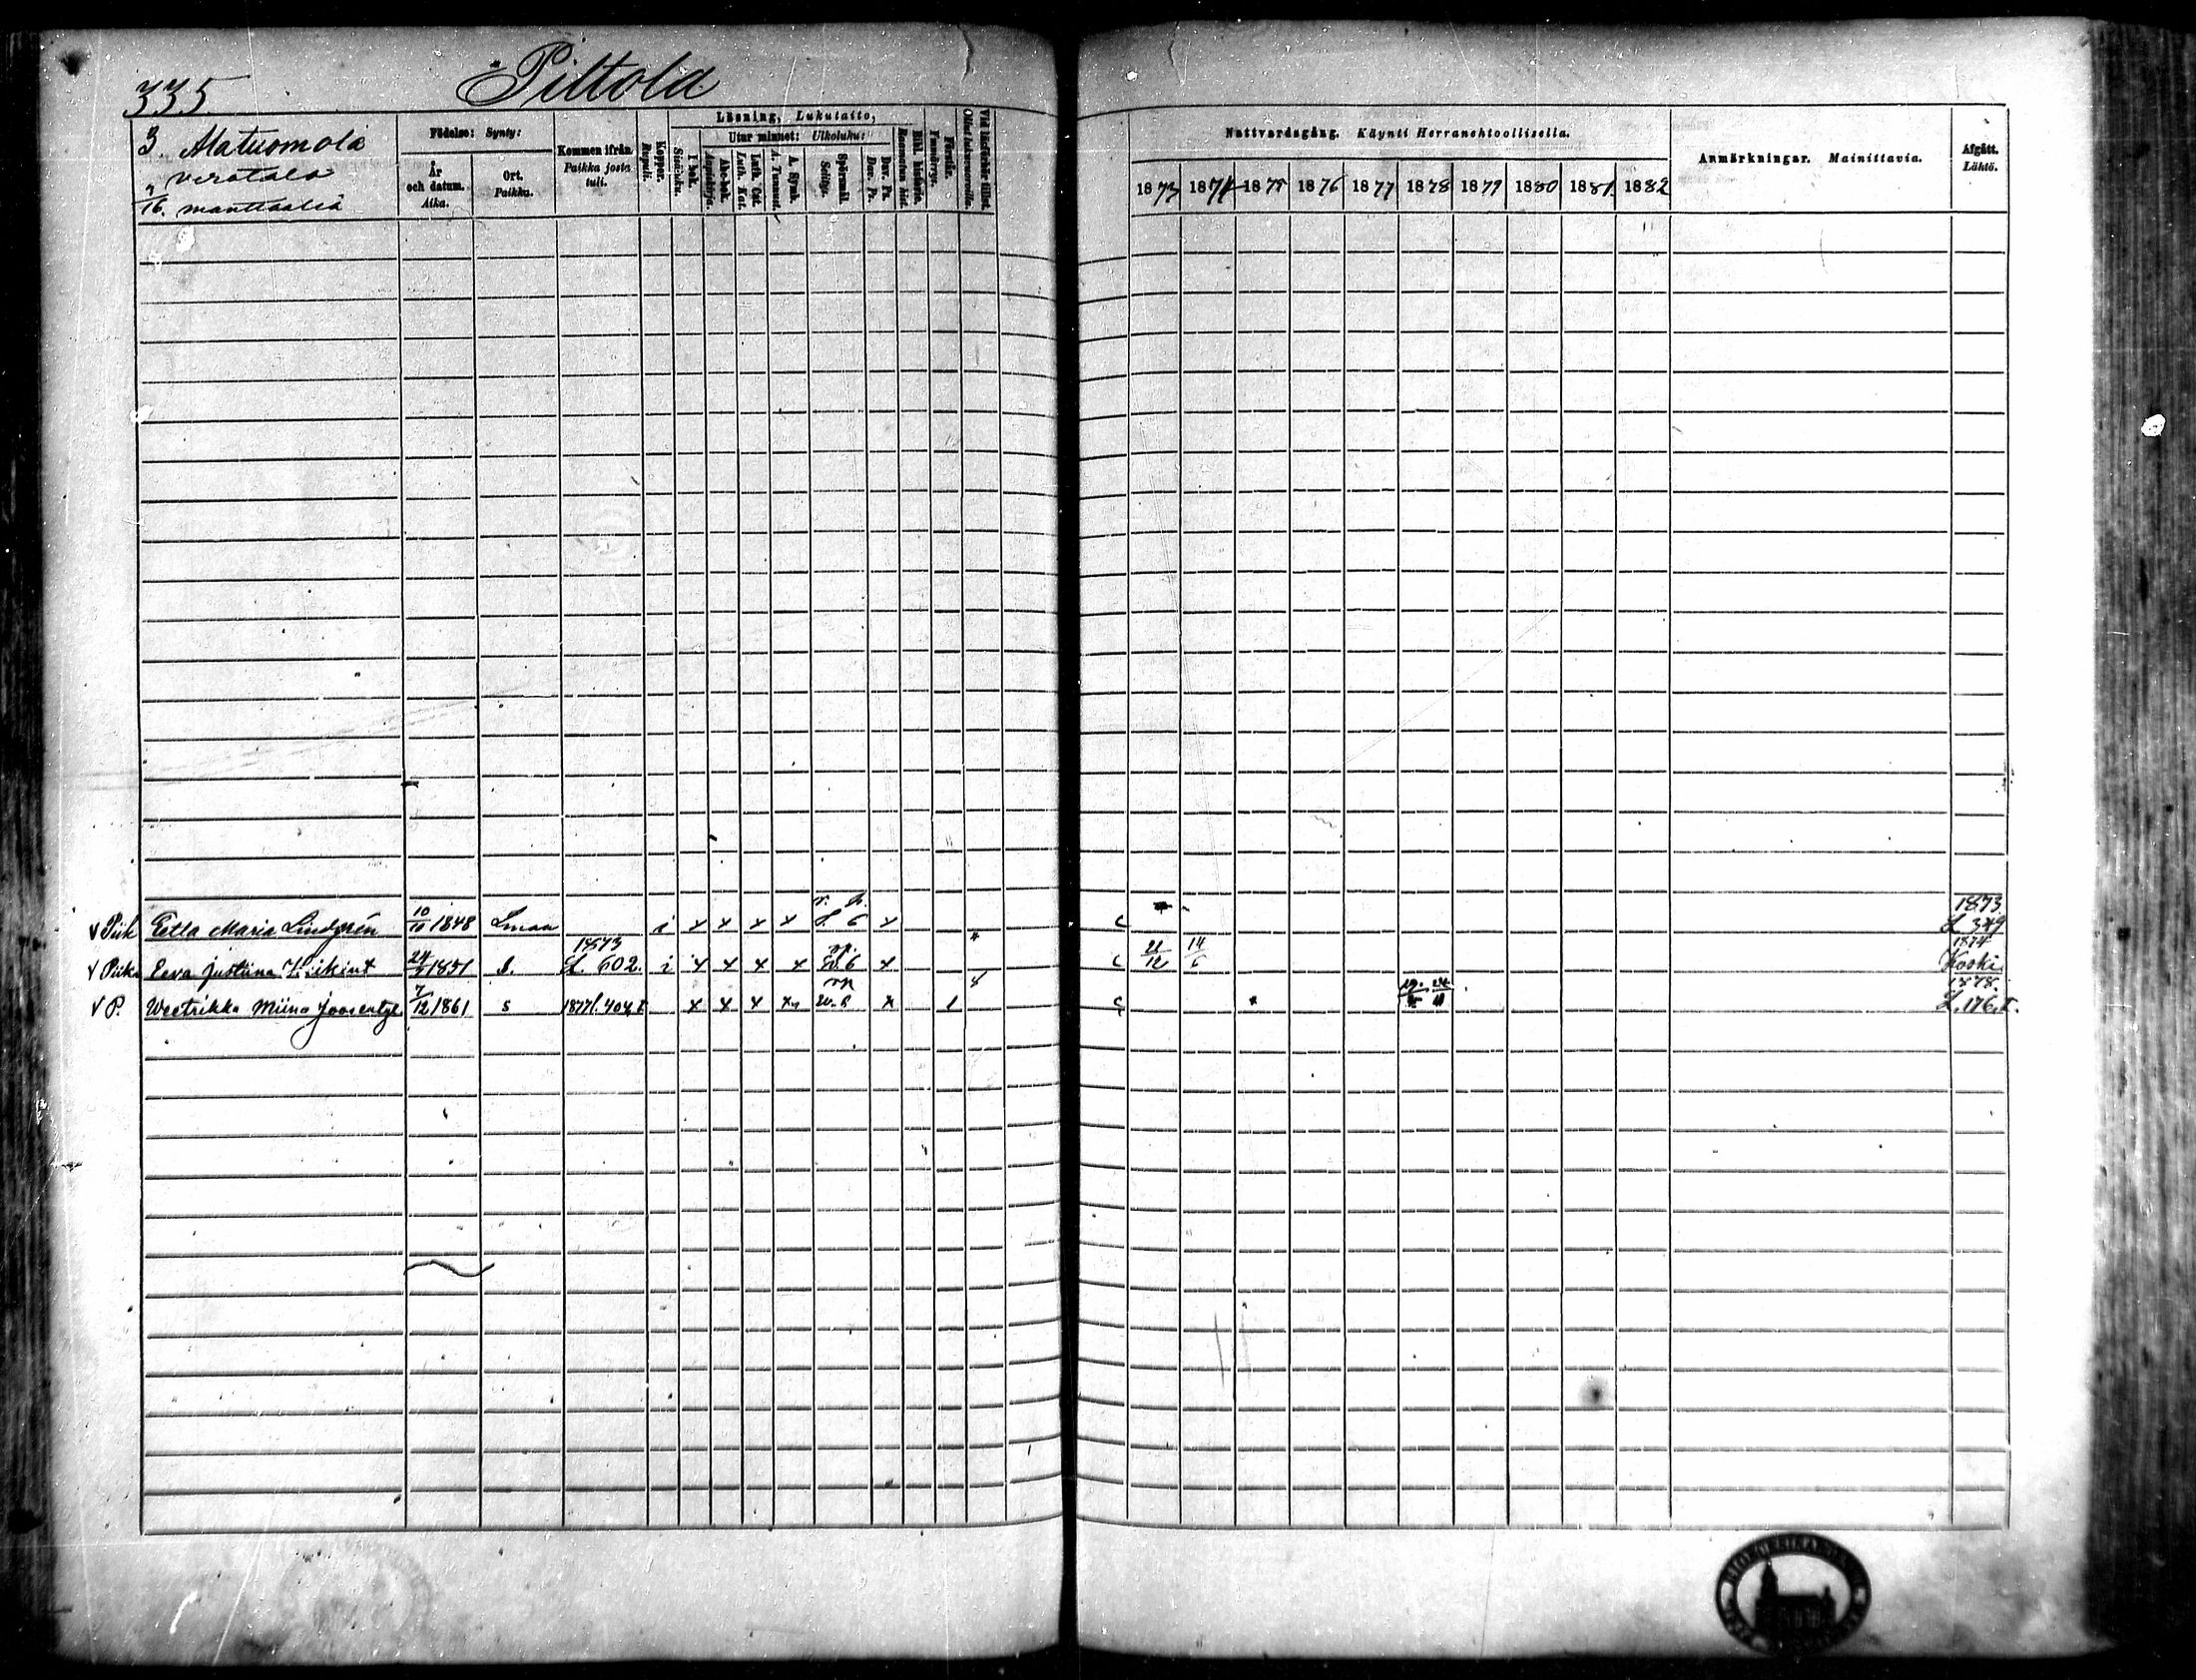 335.
Piltola
3. Matuomola
verotalo
16. manttaalia
Födelse: Synty:
År och datum. Aika.
Ort. Paikka.
Kommen ifrån. Paikka josta tuli.
Koppor. Rupuli.
Läsning, Lukutaito,
I bok. Sisäluku.
Utur minnet: Ulkoluku:
Abc-bok. Aapiskirja.
Luth. Kat.
A. Symb. A. Tunnust.
Spörsmål. Selitys.
Dav. Ps. Dav. Ps.
Bibl. historia. Raamatun hist.
Förstår. Ymmärrys.
Nattvardsgång. Käynti Herranehtoollisella.
1873 1874 1875 1876 1877 1878 1879 1880 1881. 1882
Anmärkningar. Mainittavia.
Afgått. Lähtö.
v Piik Eetla Maria Lindgrén 10/10 1848 Lmaa i x x x x 6 x c 1873 L 349
v Piika Eeva Justiina 24 1851 S. 1873 L. 602. i x x x x 6 x c 21/12 14/6 1874 Koski
v P. Weetrikka Miina 7/12 1861 s 1877 l. 404, I x x x x x 1 c 1878. L. 176. I.